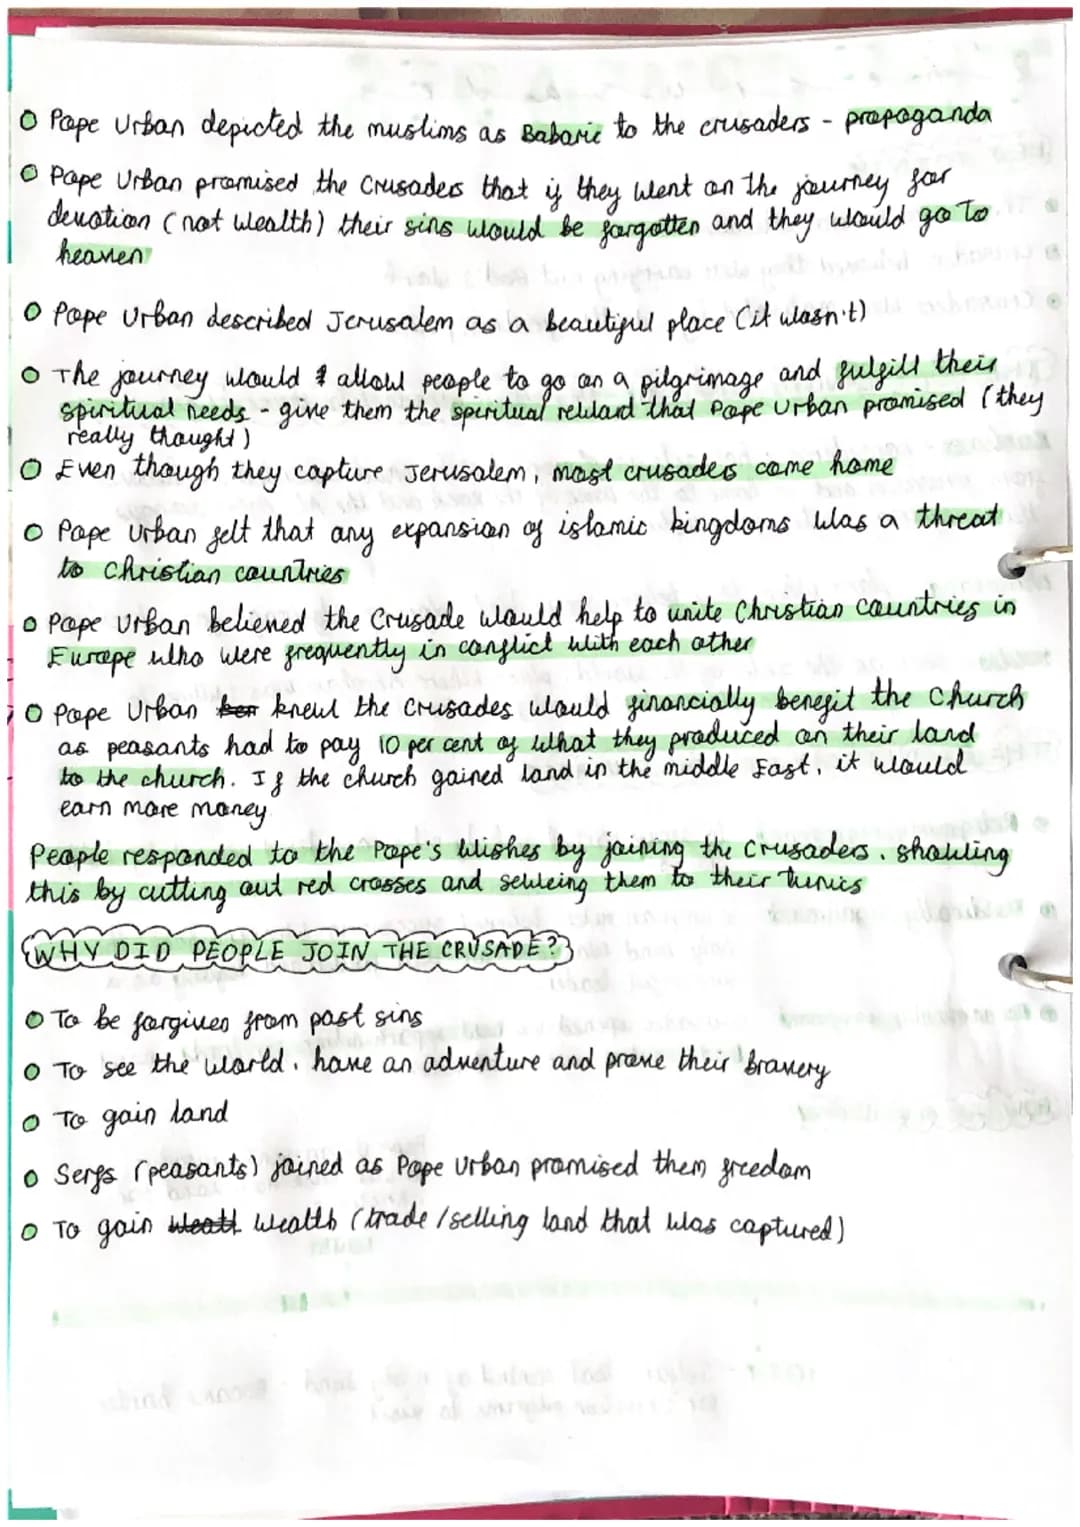 Pape Urban depicted the muslims as Babaric to the crusaders - propaganda
Pape Urban promised the Crusaders that if they went on the journey for
devotion (not wealth) their sins would be forgotten and they would go to
heaven
Pape Urban described Jerusalem as a beautiful place (it wasn't)
The journey would allow people to go on a pilgrimage and fulfill their
spiritual needs - give them the spiritual reward that Pape Urban promised (they
really thought)
Even though they capture Jerusalem, most crusaders came home
Pape Urban felt that any expansion of islamic kingdoms was a threat
to Christian countries
Pape Urban believed the Crusade would help to unite Christian countries in
Europe who were frequently in conflict with each other
Pape Urban knew the crusades would financially benefit the Church
as peasants had to pay 10 per cent of what they produced on their land
to the church. If the church gained land in the middle East, it would
earn more money
People responded to the Pope's wishes by joining the crusaders, showing
this by cutting out red crosses and seweing them to their tunics
WHY DID PEOPLE JOIN THE CRUSADE?
To be forgiven from past sins
To see the world, have an adventure and prove their bravery
To gain land
Serfs (peasants) joined as Pape Urban promised them freedom
To gain wealth (trade/selling land that was captured)